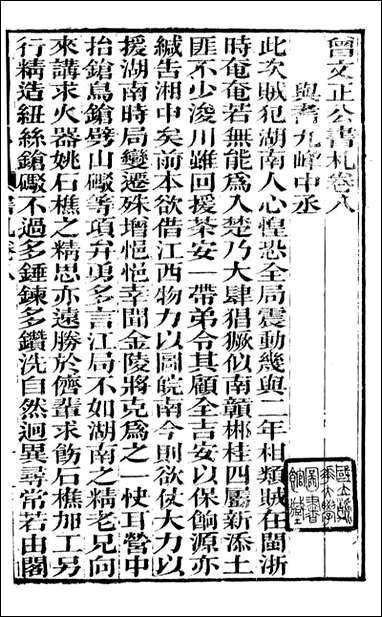 曾文正公書札卷八
與耆九峰中丞
此次賊犯湖南人心惶恐全局震動幾與二年相類賊在閩浙
時奄奄若無能為入楚乃大肆猖獗似南贛郴桂四屬新添土
匪不少浚川雖回援茶安一帶弟令其顧全吉安以保餉源亦
緘告湘中矣前本欲借江西物力以圖皖南今則欲仗大力以
援湖南時局變遷殊增悒悒幸聞金陵將克為之一快耳營中
抬鎗鳥鎗劈山礮等項弁勇多言江局不如湖南之精老兄向
來講求火器姚石樵之精思亦遠勝於儕輩求飭石樵加工另
行精造紐絲鎗礮不過多錘鍊多鑽洗自然迥異尋常若由閣
書札卷八
國立
大學
圖書
館藏